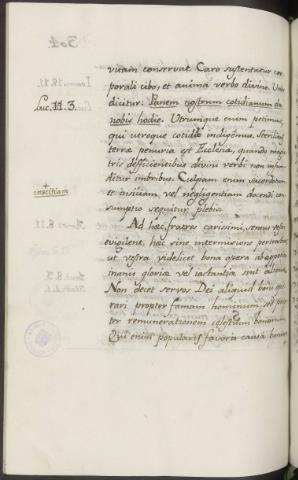 vitam conservat. Caro sustentatur cor-
porali cibo, et anima verbo divino. Unde
Luc. 11. 3.
dicitur: Panem nostrum cotidianum da
nobis hodie. Utrumque enim petimus,
qui utroque cotidie indigemus. Sterilitas
terræ penuria est Ecclesiæ, quando magis-
tris defficientibus divini verbi non
ditur imbribus. Culpam enim sacerdotum
inscitiam
et insitiam, vel negligentiam docendi con-
sumptio sequitur plebis.
Ad hæc, fratres carissimi, sensu vestro
evigilent, hæc sine intermissione
ut vestra videlicet bona opera ab appetitu
inanis gloriæ vel iactantia sint aliena.
Non decet servos Dei aliquid boni ope-
rari propter famam hominum, sed prop-
ter remunerationem cælestium bonorum.
Qui enim popularis favoris causa bonum